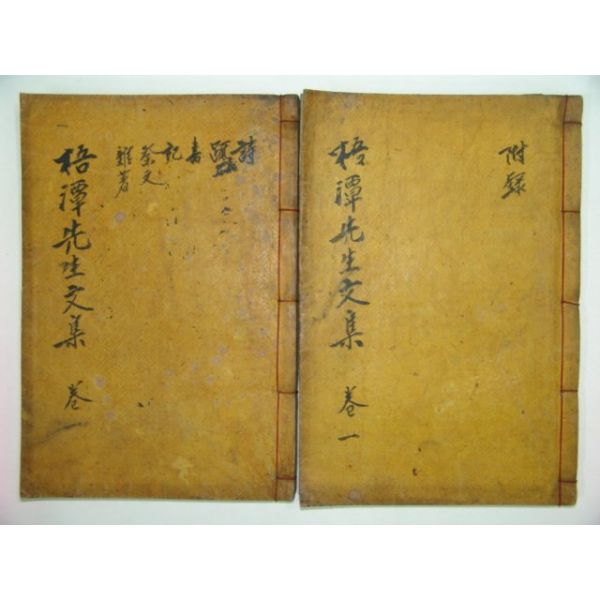 附錄
梧潭先生文集 卷一
詩
書
記
祭文
雜著
梧潭先生文集 卷一